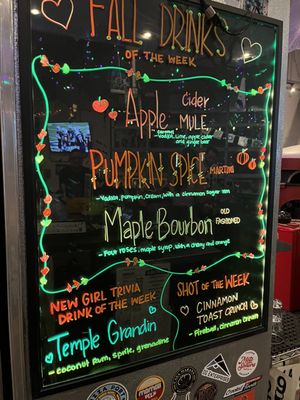 FALL DRINKS
OF THE WEEK
Apple Cider
MULE
caramel
-vodka, lime, apple cider
and ginger beer
PUMPKIN SPICE MARTINI
-Vodka, pumpkin, cream, with a cinnamon sugar rim
Maple Bourbon OLD
FASHIONED
-Four roses, maple syrup, with a cherry and orange
NEW GIRL TRIVIA
DRINK OF THE WEEK
Temple Grandin
- coconut rum, sprite, grenadine
SHOT OF THE WEEK
CINNAMON
TOAST CRUNCH
- Fireball, cinnamon cream